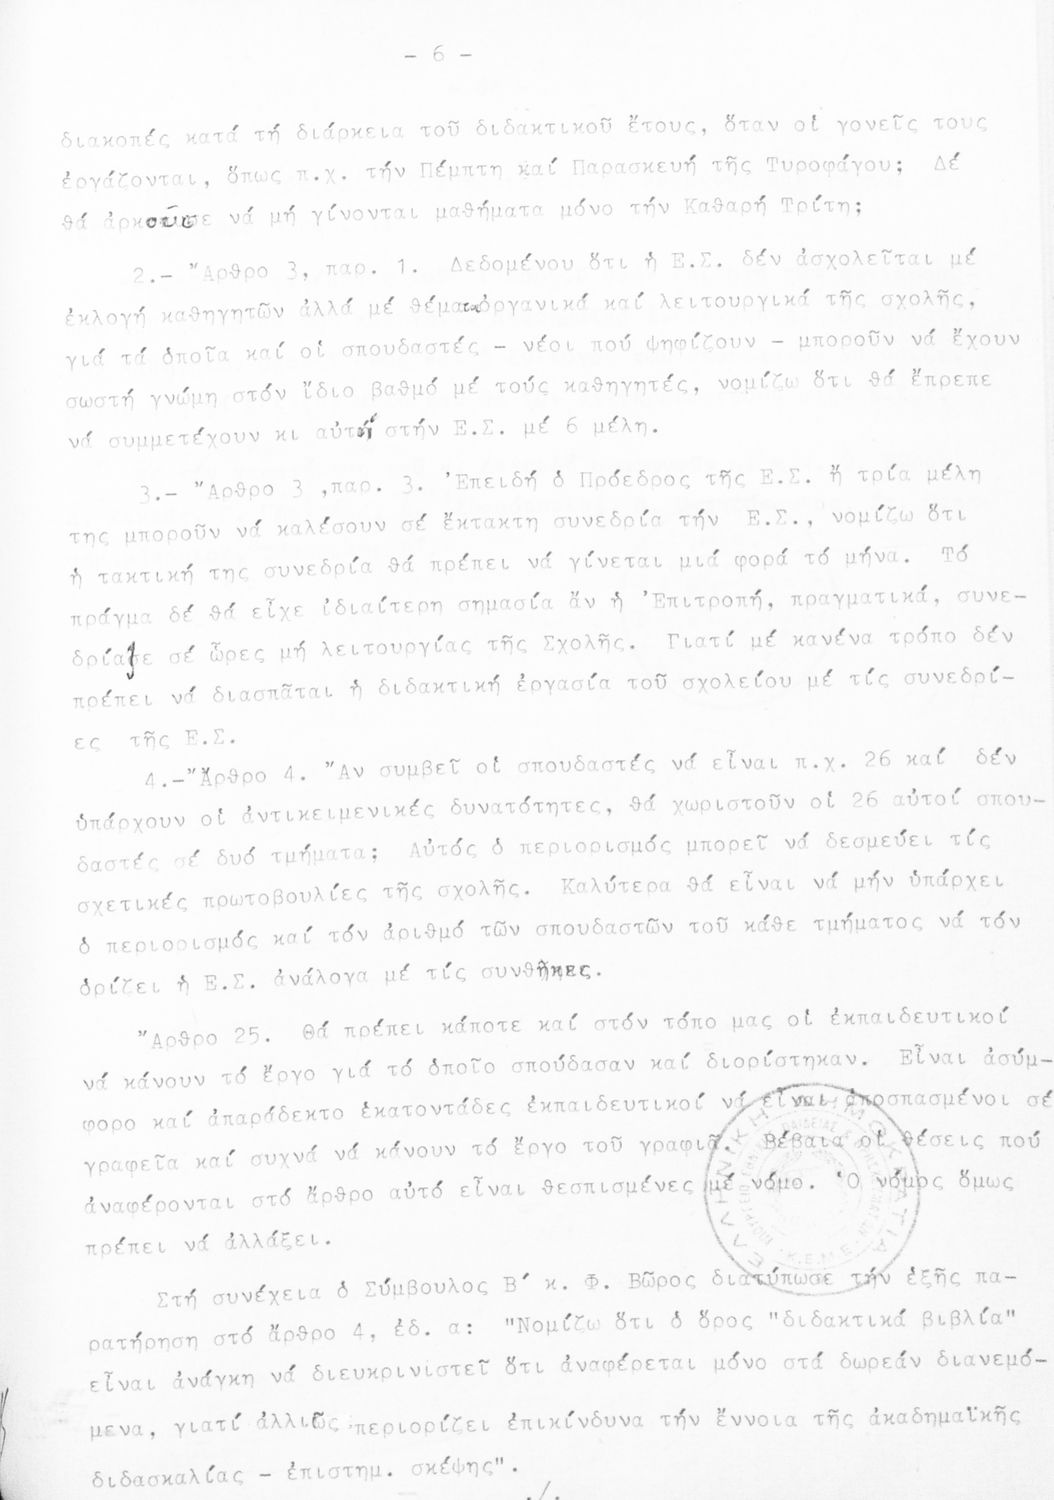 - 6 -
διακοπές κατά τή διάρκεια τοῦ διδακτικοῦ ἔτους, ὅταν οἱ γονεῖς τους
ἐργάζονται, ὅπως π.χ. τήν Πέμπτη καί Παρασκευή τῆς Τυροφάγου; Δέ
θά ἀρκοῦσε νά μή γίνονται μαθήματα μόνο τήν Καθαρή Τρίτη;
2.- Ἄρθρο 3, παρ. 1. Δεδομένου ὅτι ἡ Ε.Σ. δέν ἀσχολεῖται μέ
ἐκλογή καθηγητῶν ἀλλά μέ θέματα ὀργανικά καί λειτουργικά τῆς σχολῆς,
γιά τά ὁποῖα καί οἱ σπουδαστές - νέοι πού ψηφίζουν - μποροῦν νά ἔχουν
σωστή γνώμη στόν ἴδιο βαθμό μέ τούς καθηγητές, νομίζω ὅτι θά ἔπρεπε
νά συμμετέχουν κι αὐτοί στήν Ε.Σ. μέ 6 μέλη.
3.- Ἄρθρο 3 ,παρ. 3. Ἐπειδή ὁ Πρόεδρος τῆς Ε.Σ. ἤ τρία μέλη
της μποροῦν νά καλέσουν σέ ἔκτακτη συνεδρία τήν Ε.Σ., νομίζω ὅτι
ἡ τακτική της συνεδρία θά πρέπει νά γίνεται μιά φορά τό μήνα. Τό
πράγμα δέ θά εἶχε ἰδιαίτερη σημασία ἄν ἡ Ἐπιτροπή, πραγματικά, συνε-
δρίαζε σέ ὧρες μή λειτουργίας τῆς Σχολῆς. Γιατί μέ κανένα τρόπο δέν
πρέπει νά διασπᾶται ἡ διδακτική ἐργασία τοῦ σχολείου μέ τίς συνεδρί-
ες τῆς Ε.Σ.
4.- Ἄρθρο 4. Ἄν συμβεῖ οἱ σπουδαστές νά εἶναι π.χ. 26 καί δέν
ὑπάρχουν οἱ ἀντικειμενικές δυνατότητες, θά χωριστοῦν οἱ 26 αὐτοί σπου-
δαστές σέ δυό τμήματα; Αὐτός ὁ περιορισμός μπορεῖ νά δεσμεύει τίς
σχετικές πρωτοβουλίες τῆς σχολῆς. Καλύτερα θά εἶναι νά μήν ὑπάρχει
ὁ περιορισμός καί τόν ἀριθμό τῶν σπουδαστῶν τοῦ κάθε τμήματος νά τόν
ὁρίζει ἡ Ε.Σ. ἀνάλογα μέ τίς συνθῆκες.
Ἄρθρο 25. Θά πρέπει κάποτε καί στόν τόπο μας οἱ ἐκπαιδευτικοί
νά κάνουν τό ἔργο γιά τό ὁποῖο σπούδασαν καί διορίστηκαν. Εἶναι ἀσύμ-
φορο καί ἀπαράδεκτο ἑκατοντάδες ἐκπαιδευτικοί νά εἶναι ἀποσπασμένοι σέ
γραφεῖα καί συχνά νά κάνουν τό ἔργο τοῦ γραφιᾶ. Βέβαια οἱ θέσεις πού
ἀναφέρονται στό ἄρθρο αὐτό εἶναι θεσπισμένες μέ νόμο. Ὁ νόμος ὅμως
πρέπει νά ἀλλάξει.
ΕΛΛΗΝΙΚΗ ΔΗΜΟΚΡΑΤΙΑ
Κ.Ε.Μ.Ε.
Στή συνέχεια ὁ Σύμβουλος Β΄ κ. Φ. Βῶρος διατύπωσε τήν ἑξῆς πα-
ρατήρηση στό ἄρθρο 4, ἐδ. α: "Νομίζω ὅτι ὁ ὅρος "διδακτικά βιβλία"
εἶναι ἀνάγκη νά διευκρινιστεῖ ὅτι ἀναφέρεται μόνο στά δωρεάν διανεμό-
μενα, γιατί ἀλλιῶς περιορίζει ἐπικίνδυνα τήν ἔννοια τῆς ἀκαδημαϊκῆς
διδασκαλίας - ἐπιστημ. σκέψης".
./.